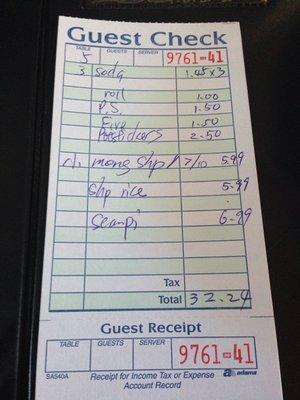 Guest Check
TABLE GUESTS SERVER
5 9761-41
3 soda 1.45x3
roll 1.00
P.S. 1.50
Five 1.50
Potstickers 2.50
mong shp 7/10 5.99
shp rice 5.99
scampi 6.99
Tax
Total 32.24
Guest Receipt
TABLE GUESTS SERVER
9761-41
SA540A Receipt for Income Tax or Expense adams
Account Record